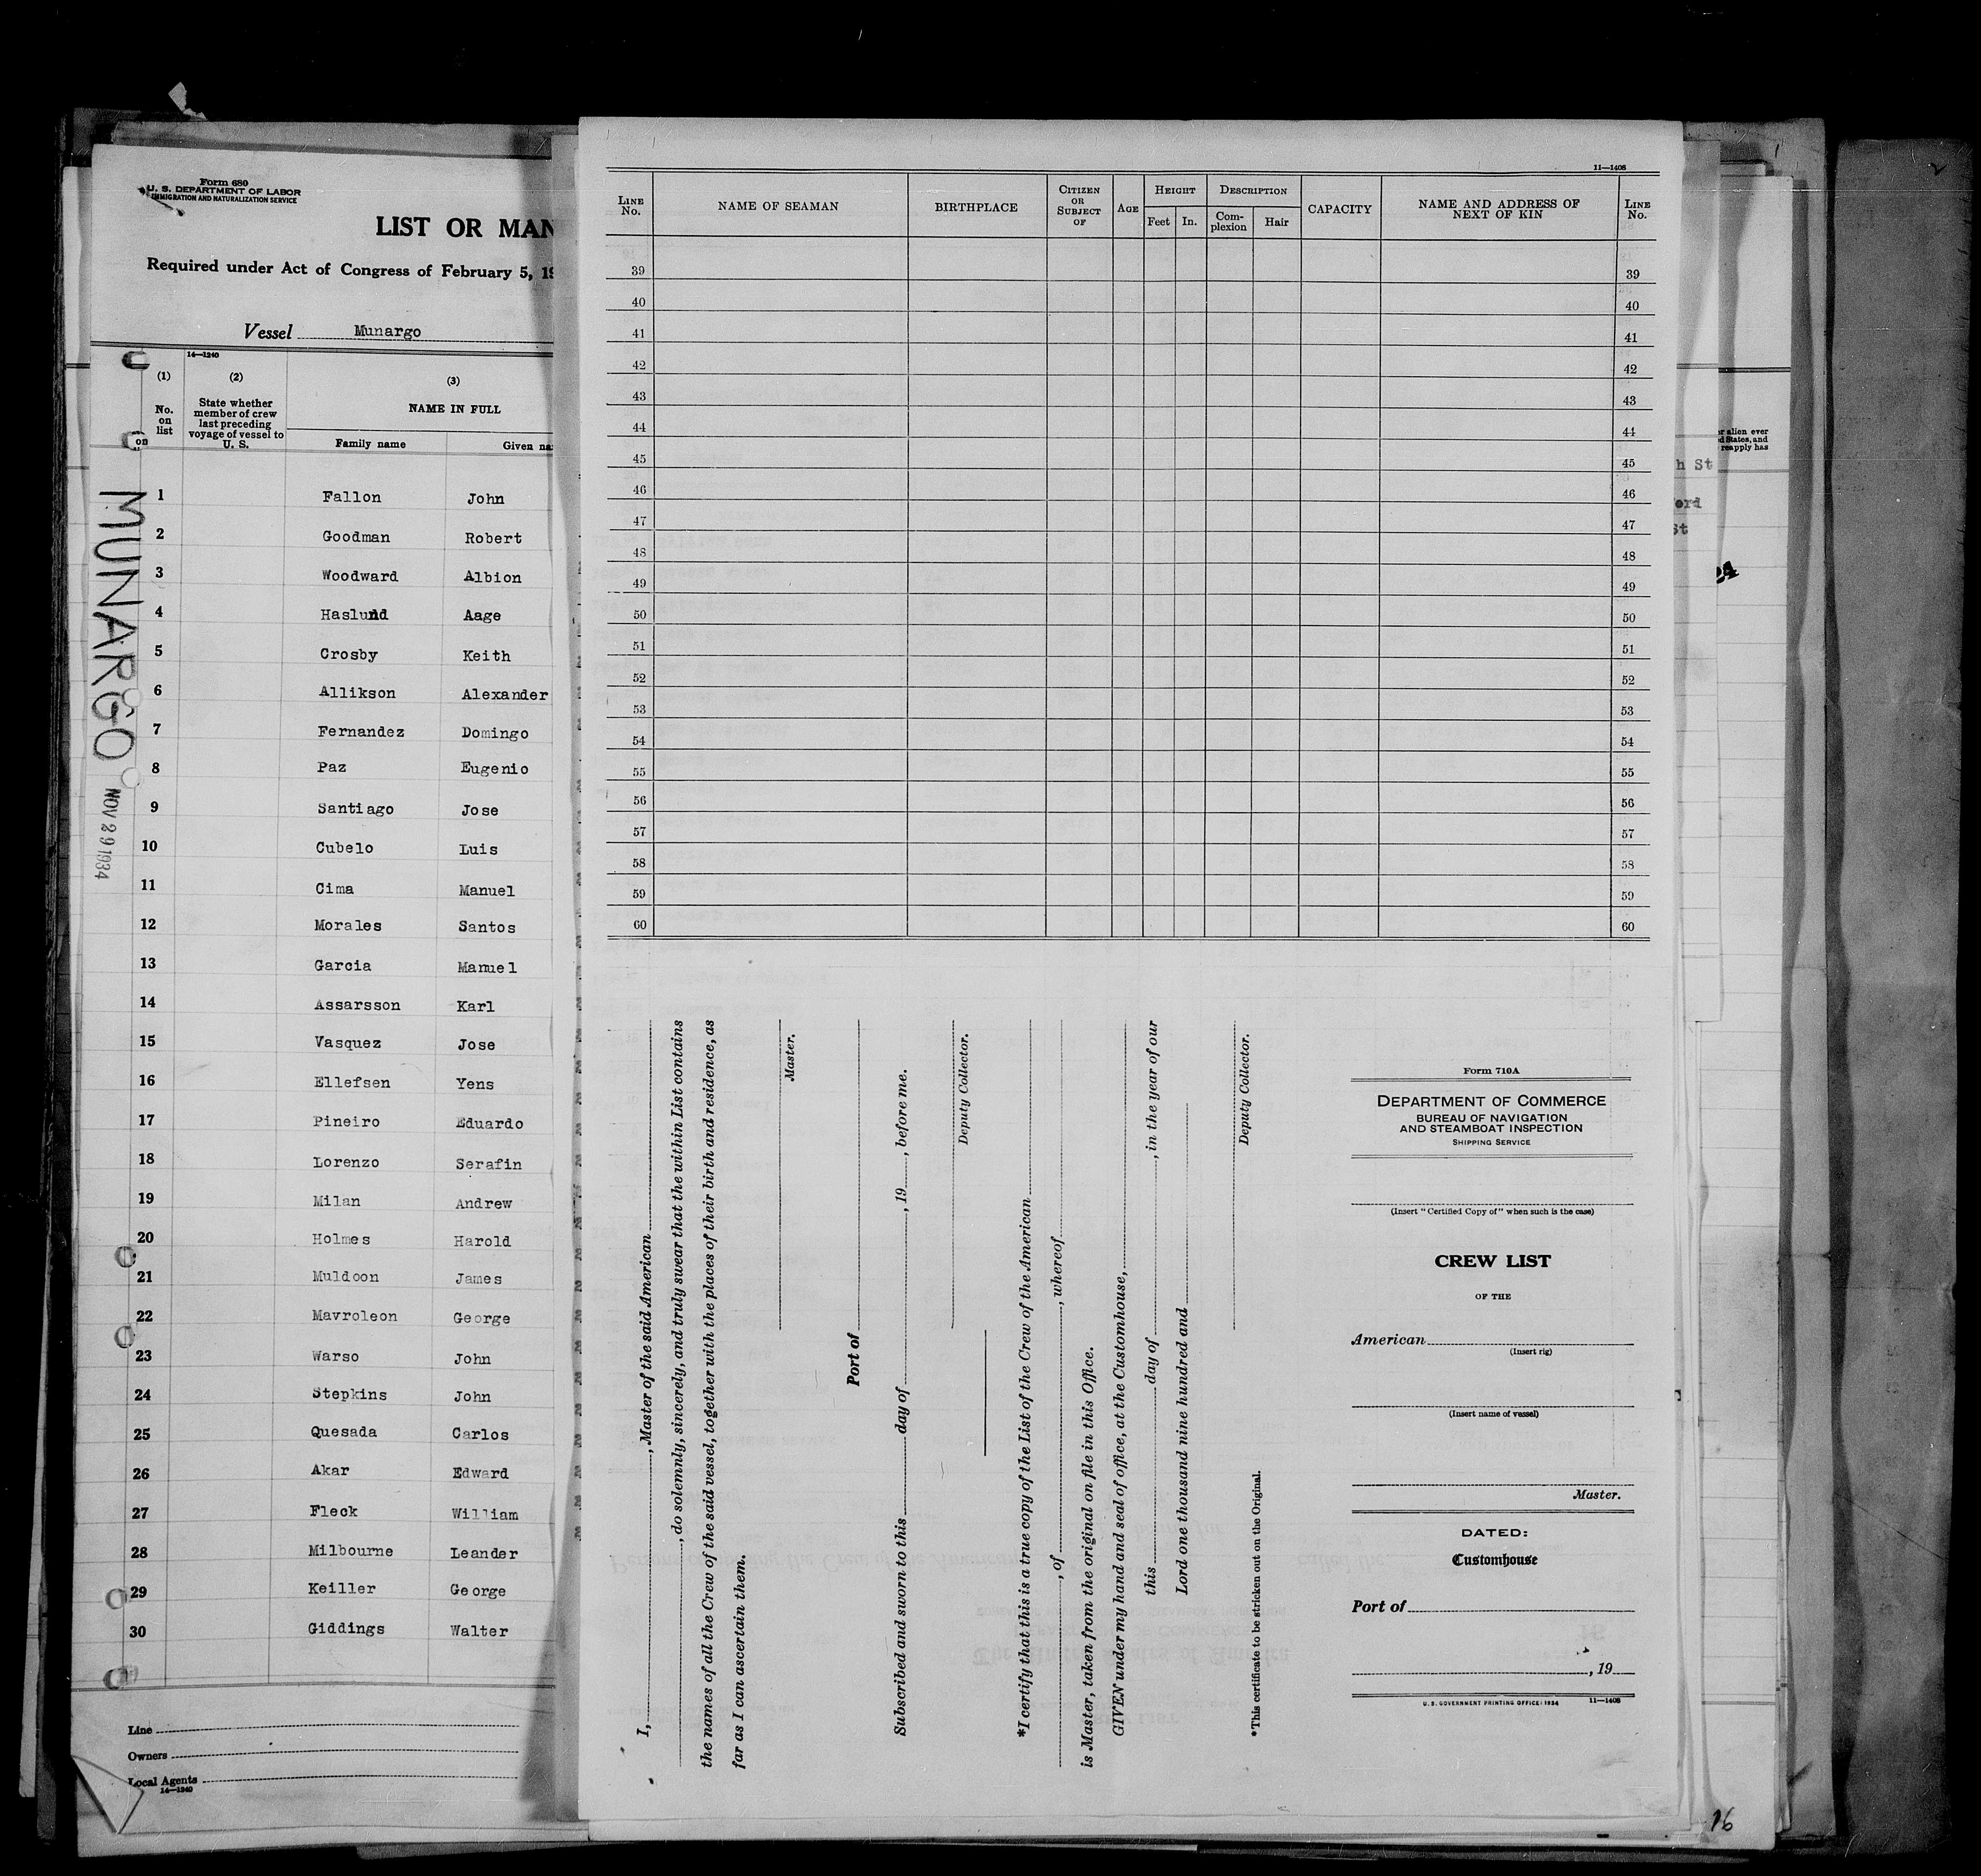 Form 680
U. S. DEPARTMENT OF LABOR
IMMIGRATION AND NATURALIZATION SERVICE
LIST OR MAN
Required under Act of Congress of February 5, 19
Vessel Munargo
14—1240
(1) (2) (3)
No. on list
State whether member of crew last preceding voyage of vessel to U. S.
NAME IN FULL
Family name Given na
on
1 Fallon John
2 Goodman Robert
3 Woodward Albion
4 Haslund Aage
5 Crosby Keith
6 Allikson Alexander
7 Fernandez Domingo
8 Paz Eugenio
9 Santiago Jose
10 Cubelo Luis
11 Cima Manuel
12 Morales Santos
13 Garcia Manuel
14 Assarsson Karl
15 Vasquez Jose
16 Ellefsen Yens
17 Pineiro Eduardo
18 Lorenzo Serafin
19 Milan Andrew
20 Holmes Harold
21 Muldoon James
22 Mavroleon George
23 Warso John
24 Stepkins John
25 Quesada Carlos
26 Akar Edward
27 Fleck William
28 Milbourne Leander
29 Keiller George
30 Giddings Walter
Line
Owners
Local Agents
14—1240
MUNARGO
NOV 29 1934
11—1408
LINE No.
NAME OF SEAMAN
BIRTHPLACE
CITIZEN OR SUBJECT OF
AGE
HEIGHT
Feet In.
DESCRIPTION
Com-plexion Hair
CAPACITY
NAME AND ADDRESS OF NEXT OF KIN
LINE No.
39 39
40 40
41 41
42 42
43 43
44 44
45 45
46 46
47 47
48 48
49 49
50 50
51 51
52 52
53 53
54 54
55 55
56 56
57 57
58 58
59 59
60 60
I, , Master of the said American
, do solemnly, sincerely, and truly swear that the within List contains
the names of all the Crew of the said vessel, together with the places of their birth and residence, as
far as I can ascertain them.
Master.
Port of
Subscribed and sworn to this day of , 19 , before me.
Deputy Collector.
*I certify that this is a true copy of the List of the Crew of the American
, of , whereof
is Master, taken from the original on file in this Office.
GIVEN under my hand and seal of office, at the Customhouse,
this day of , in the year of our
Lord one thousand nine hundred and
Deputy Collector.
*This certificate to be stricken out on the Original.
Form 710A
DEPARTMENT OF COMMERCE
BUREAU OF NAVIGATION
AND STEAMBOAT INSPECTION
SHIPPING SERVICE
(Insert "Certified Copy of" when such is the case)
CREW LIST
OF THE
American
(Insert rig)
(Insert name of vessel)
Master.
DATED:
Customhouse
Port of
, 19
U. S. GOVERNMENT PRINTING OFFICE: 1934 11—1408
r alien ever
d States, and
reapply has
h St
ford
St
16